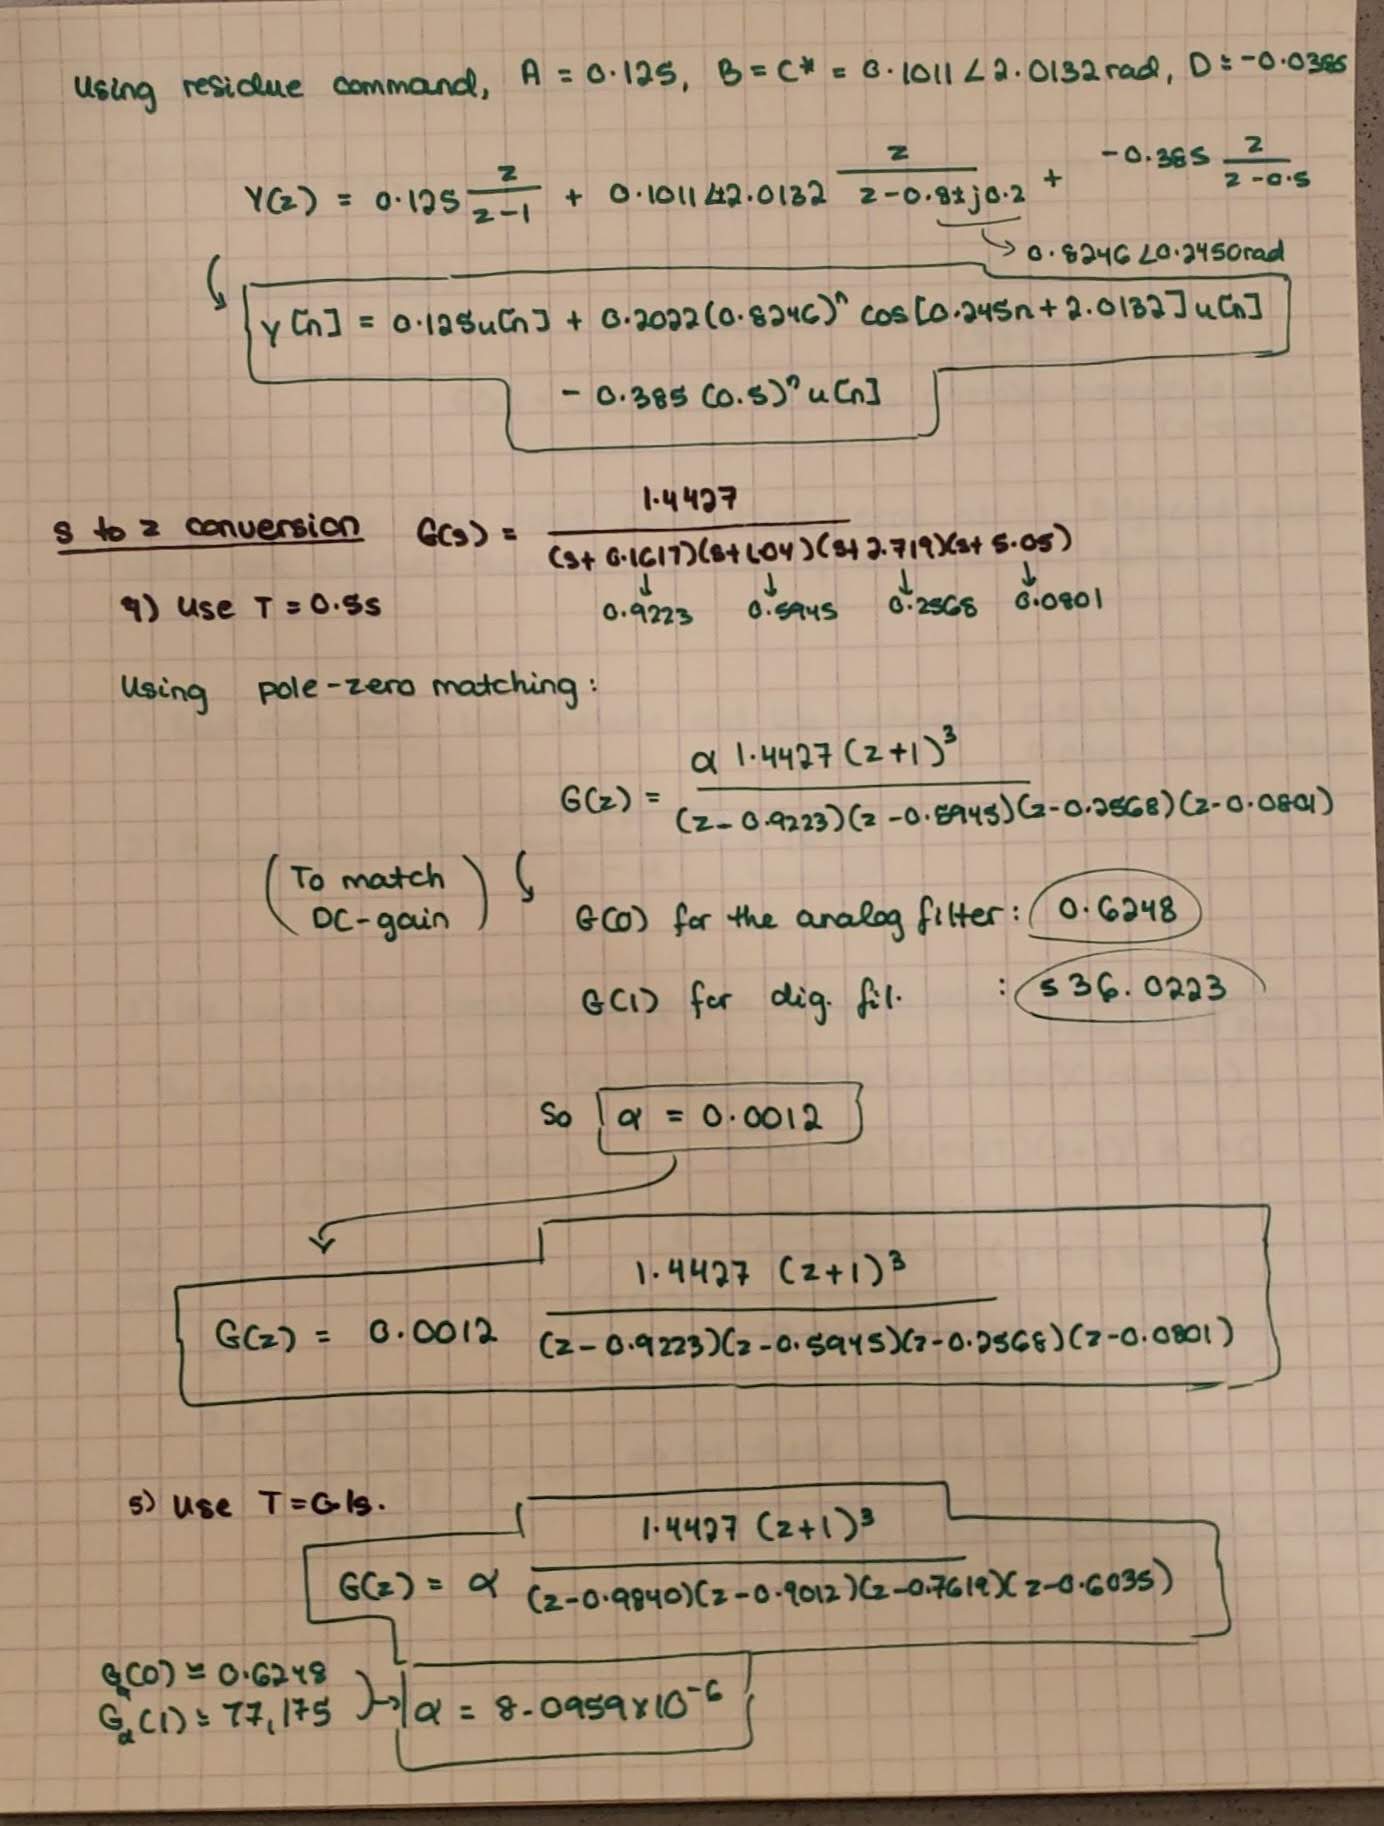 Using residue command, A = 0.125, B = C* = 0.1011∠2.0132rad, D = -0.0385
Y(z) = 0.125 z/(z-1) + 0.1011∠±2.0132 z/(z-0.8±j0.2) + -0.385 z/(z-0.5)
→ 0.8246∠0.2450rad
y[n] = 0.125u[n] + 0.2022(0.8246)ⁿ cos[0.245n + 2.0132]u[n]
- 0.385(0.5)ⁿu[n]
s to z conversion G(s) = 1.4427/((s+0.1617)(s+1.04)(s+2.719)(s+5.05))
4) Use T = 0.5s ↓0.9223 ↓0.5945 ↓0.2568 ↓0.0801
Using pole-zero matching:
G(z) = α 1.4427(z+1)³/((z-0.9223)(z-0.5945)(z-0.2568)(z-0.0801))
(To match
DC-gain)
G(0) for the analog filter: 0.6248
G(1) for dig. fil. : 536.0223
So α = 0.0012
G(z) = 0.0012 1.4427 (z+1)³/((z-0.9223)(z-0.5945)(z-0.2568)(z-0.0801))
5) Use T=0.1s.
G(z) = α 1.4427 (z+1)³/((z-0.9840)(z-0.9012)(z-0.7619)(z-0.6035))
G_a(0) = 0.6248
G_d(1) = 77,175 → α = 8.0959x10⁻⁶